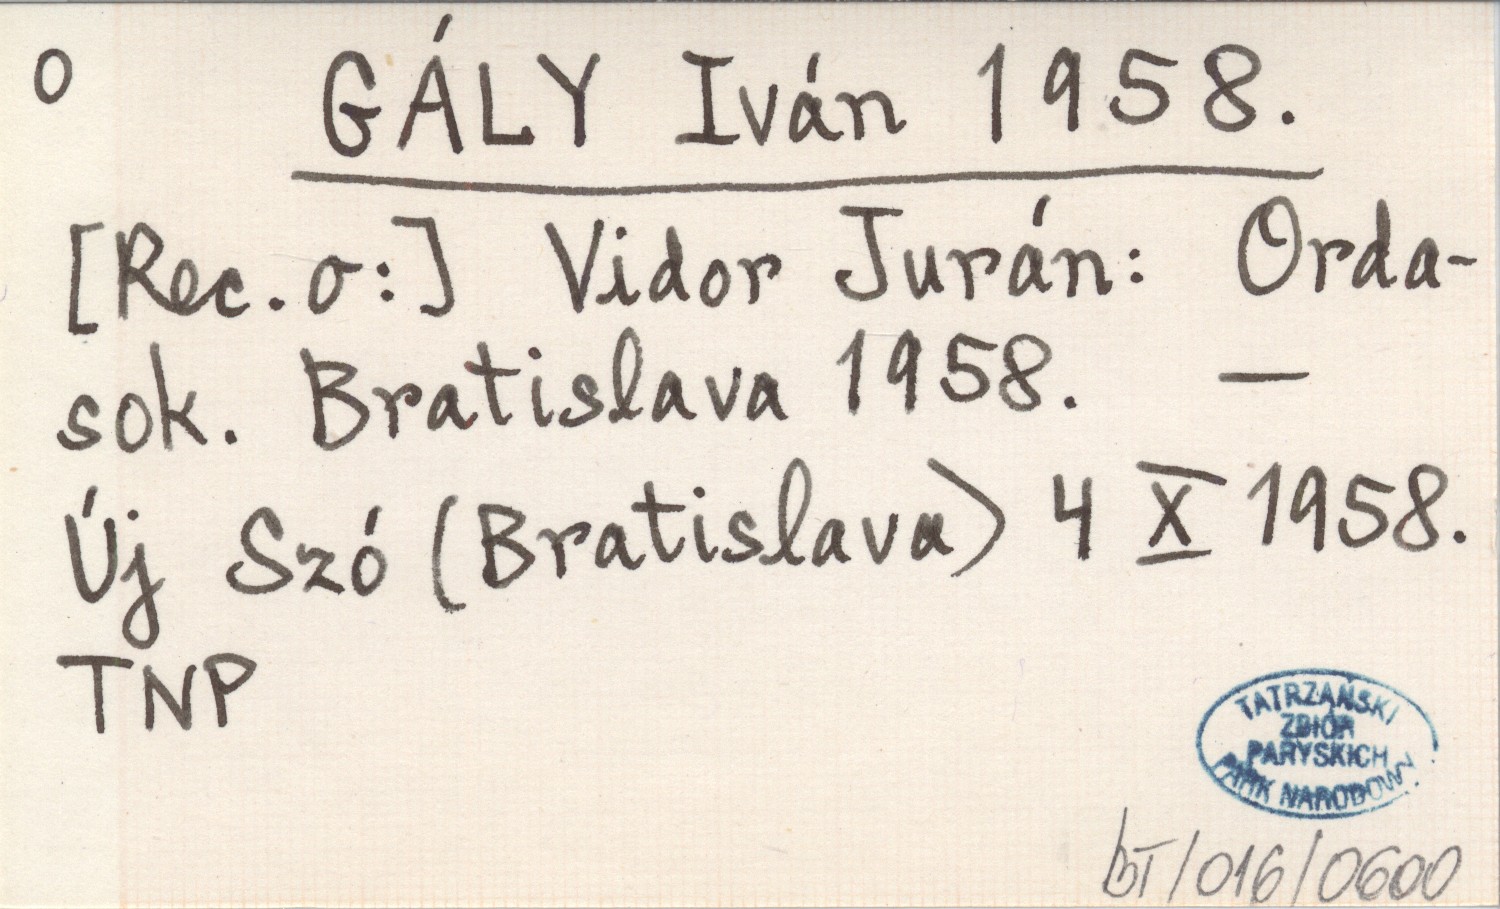 o
GÁLY Iván 1958.
[Rec. o:] Vidor Jurán: Orda-
sok. Bratislava 1958. —
Új Szó (Bratislava) 4 X 1958.
TNP
TATRZAŃSKI
ZBIÓR
PARYSKICH
PARK NARODOWY
bT/016/0600